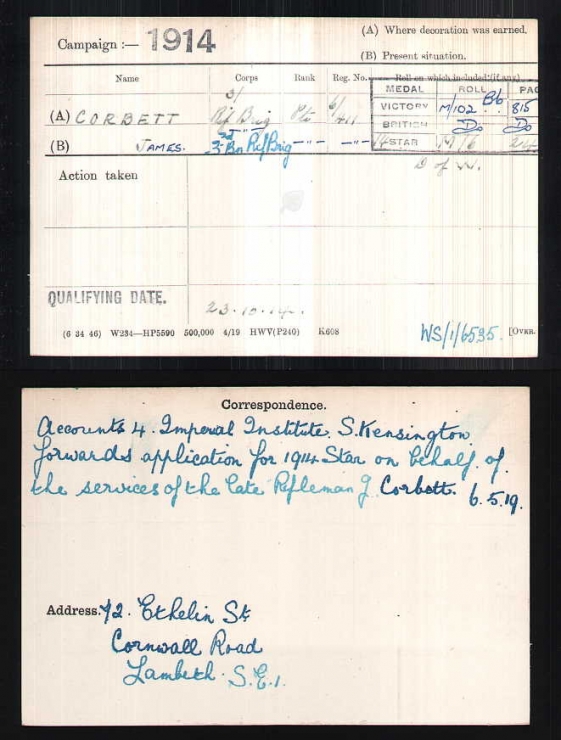 Campaign :— 1914
(A) Where decoration was earned.
(B) Present situation.
Name Corps Rank Reg. No. Roll on which included (if any)
MEDAL ROLL PAG
3/
(A) CORBETT Rif Brig Pte 6/
VICTORY M/102 B6 815
BRITISH Do Do
(B) JAMES. 3rd Bn Rif Brig —"— —"—
14 STAR M/6
D of W.
Action taken
QUALIFYING DATE. 23.10.14.
(6 34 46) W234—HP5590 500,000 4/19 HWV(P240) K608
WS/1/6535. [OVER.
Correspondence.
Accounts 4. Imperial Institute. S. Kensington
forwards application for 1914 Star on behalf of
the services of the late Rifleman J. Corbett. 6.5.19.
Address. 42. Ethelin St
Cornwall Road
Lambeth. S.E.1.